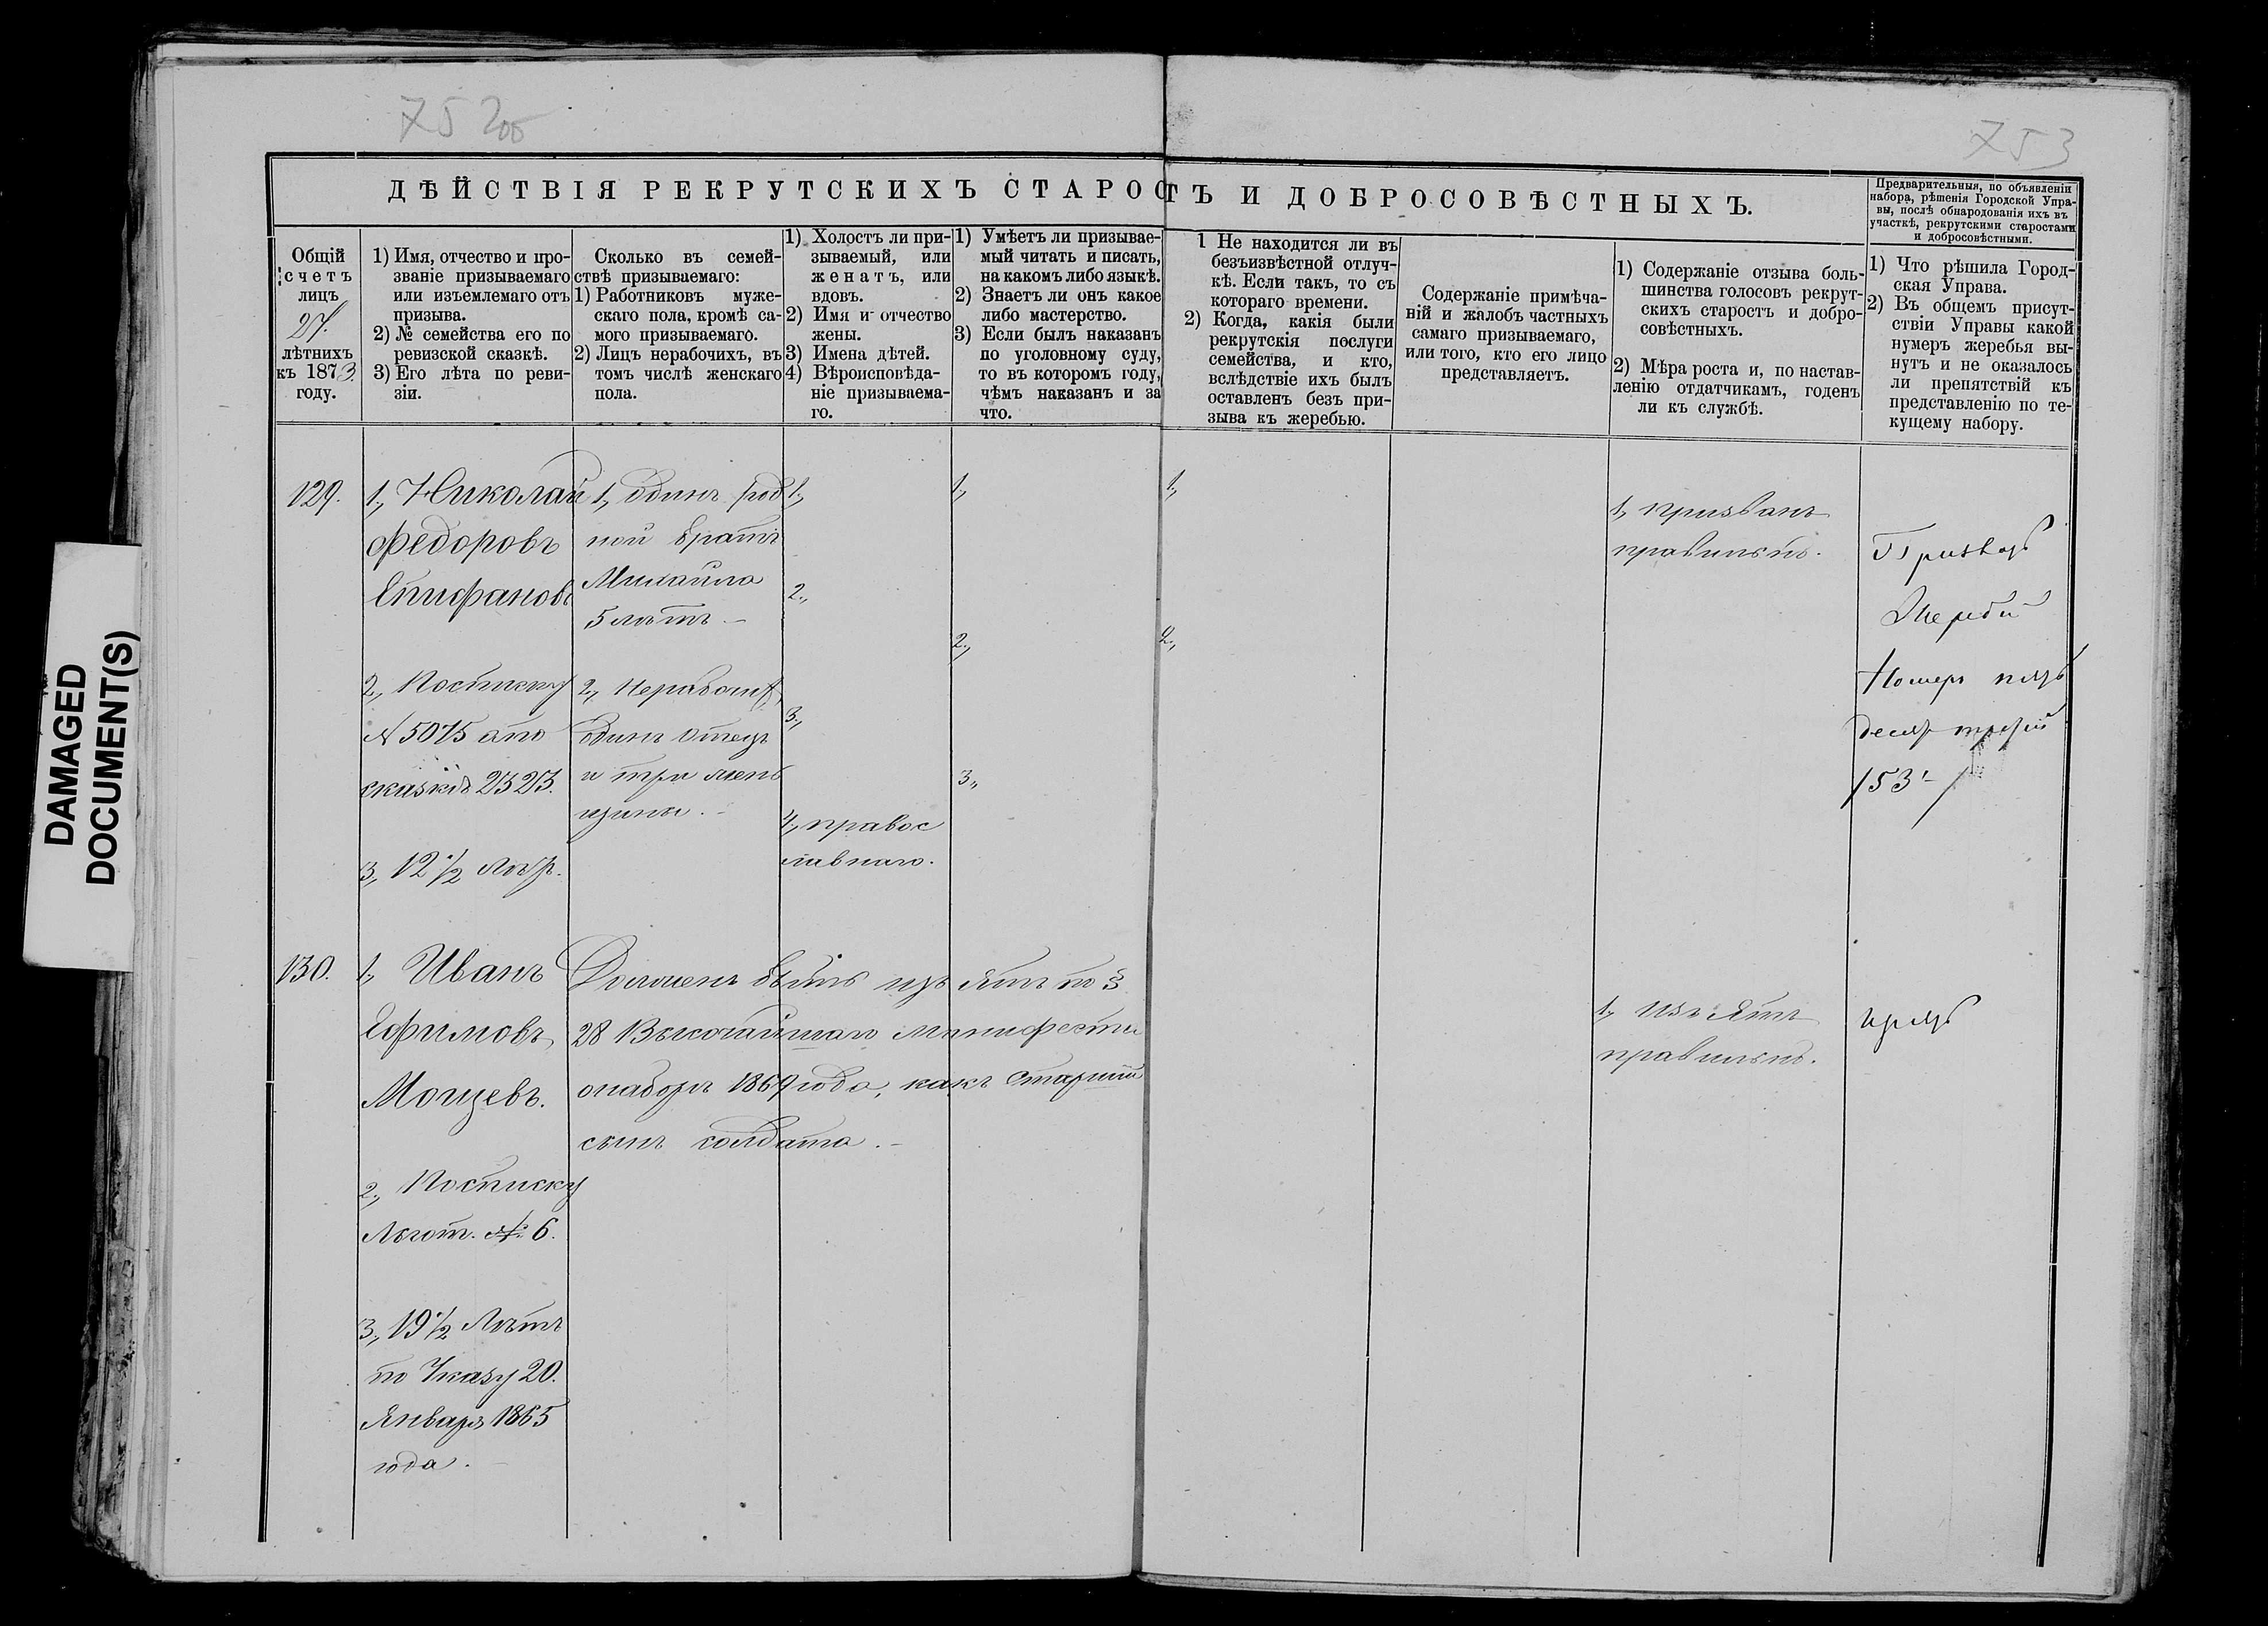 752об
753
DAMAGED
DOCUMENT(S)
ДѢЙСТВІЯ РЕКРУТСКИХЪ СТАРОСТЪ И ДОБРОСОВѢСТНЫХЪ.
Общій
счетъ
лицъ
27.
лѣтнихъ
къ 1873.
году.
1) Имя, отчество и про-
званіе призываемаго
или изъемлемаго отъ
призыва.
2) № семейства его по
ревизской сказкѣ.
3) Его лѣта по реви-
зіи.
Сколько въ семей-
ствѣ призываемаго:
1) Работниковъ муже-
скаго пола, кромѣ са-
мого призываемаго.
2) Лицъ нерабочихъ, въ
томъ числѣ женскаго
пола.
1) Холостъ ли при-
зываемый, или
женатъ, или
вдовъ.
2) Имя и отчество
жены.
3) Имена дѣтей.
4) Вѣроисповѣда-
ніе призываема-
го.
1) Умѣетъ ли призывае-
мый читать и писать,
на какомъ либо языкѣ.
2) Знаетъ ли онъ какое
либо мастерство.
3) Если былъ наказанъ
по уголовному суду,
то въ которомъ году,
чѣмъ наказанъ и за
что.
1 Не находится ли въ
безъизвѣстной отлуч-
кѣ. Если такъ, то съ
котораго времени.
2) Когда, какія были
рекрутскія послуги
семейства, и кто,
вслѣдствіе ихъ былъ
оставленъ безъ при-
зыва къ жеребью.
Содержаніе примѣча-
ній и жалобъ частныхъ
самаго призываемаго,
или того, кто его лицо
представляетъ.
1) Содержаніе отзыва боль-
шинства голосовъ рекрут-
скихъ старостъ и добро-
совѣстныхъ.
2) Мѣра роста и, по настав-
ленію отдатчикамъ, годенъ
ли къ службѣ.
Предварительныя, по объявленіи
набора, рѣшенія Городской Упра-
вы, послѣ обнародованія ихъ въ
участкѣ, рекрутскими старостами
и добросовѣстными.
1) Что рѣшила Город-
ская Управа.
2) Въ общемъ присут-
ствіи Управы какой
нумеръ жеребья вы-
нутъ и не оказалось
ли препятствій къ
представленію по те-
кущему набору.
129.
1, Николай
Федоровъ
Епифановъ
2, Посписку
№ 5075 апо
сказкѣ 2323.
3, 12 ½ лѣт.
1, Одинъ род
ной братъ
Михайло
5 лѣтъ. –
2, Неработ.
Одинъ Отецъ
и три жен
щины. –
1,
2.,
3.,
4, правос
лавнаго.
1,
2.,
3.,
1,
2.,
1, призванъ
правильно.
Призвать
Жеребій
Номеръ пять
десят третій
/53/
130.
1, Иванъ
Ефимовъ
Мощевъ.
2., Посписку
Льгот. № 6.
3., 19 ½ Лѣтъ
по Указу 20.
Января 1865
года.
Долженъ быть изъятъ по §
28 Высочайшаго манифеста
онаборѣ 1869 года, какъ Старшій
сынъ солдата. –
1, Изъятъ
правильно.